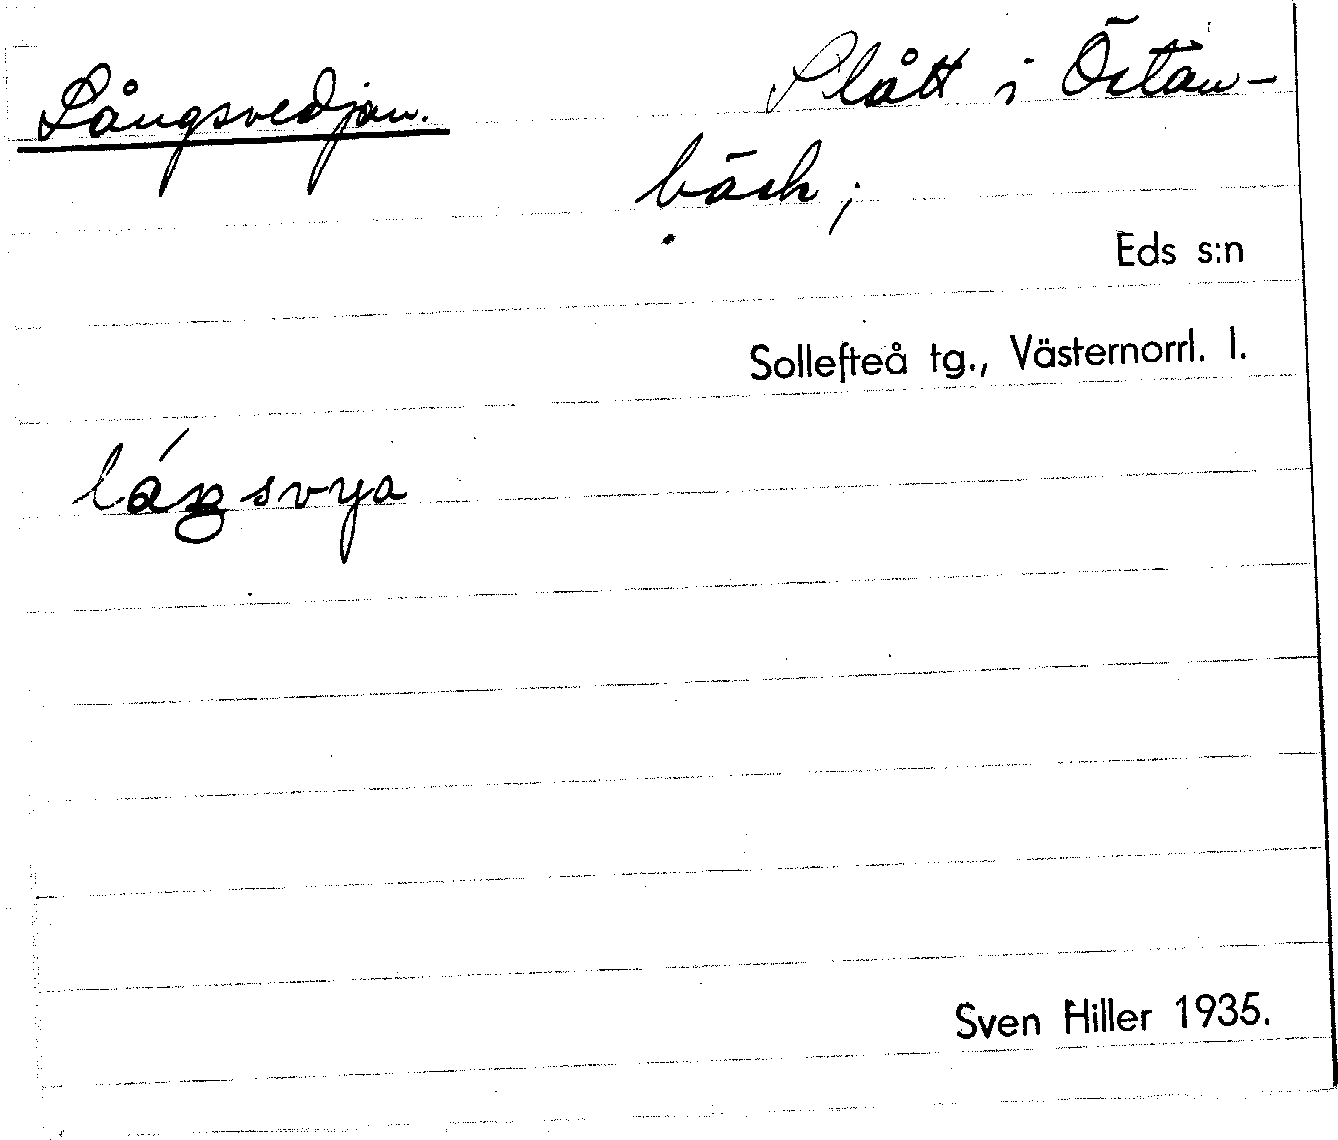 Långsvedjan. Slått i Östan-
bäck;
Eds s:n
Sollefteå tg., Västernorrl. l.
Sven Hiller 1935.